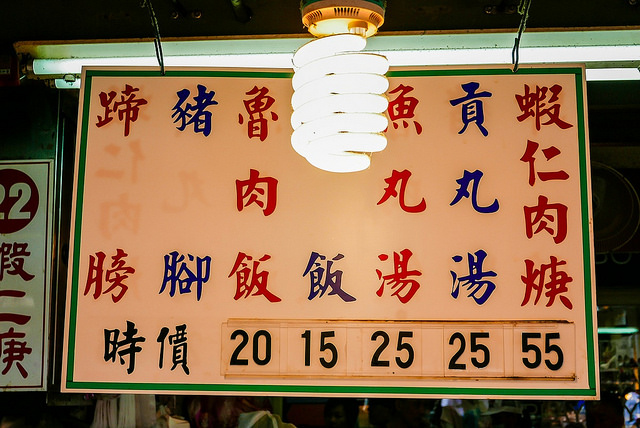 蝦仁肉焿
貢丸湯
魚丸湯
飯
魯肉飯
豬腳
蹄膀
時價 20 15 25 25 55